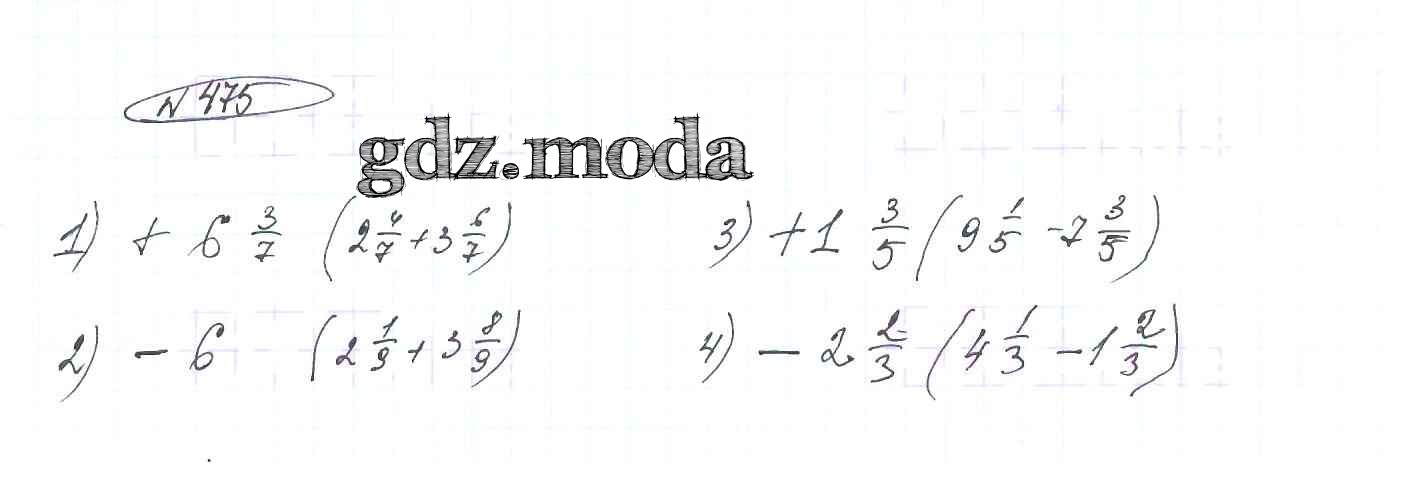 N 475
gdz.moda
1) + 6 3/7 (2 4/7 + 3 6/7)
3) + 1 3/5 (9 1/5 - 7 3/5)
2) - 6 (2 1/9 + 3 8/9)
4) - 2 2/3 (4 1/3 - 1 2/3)